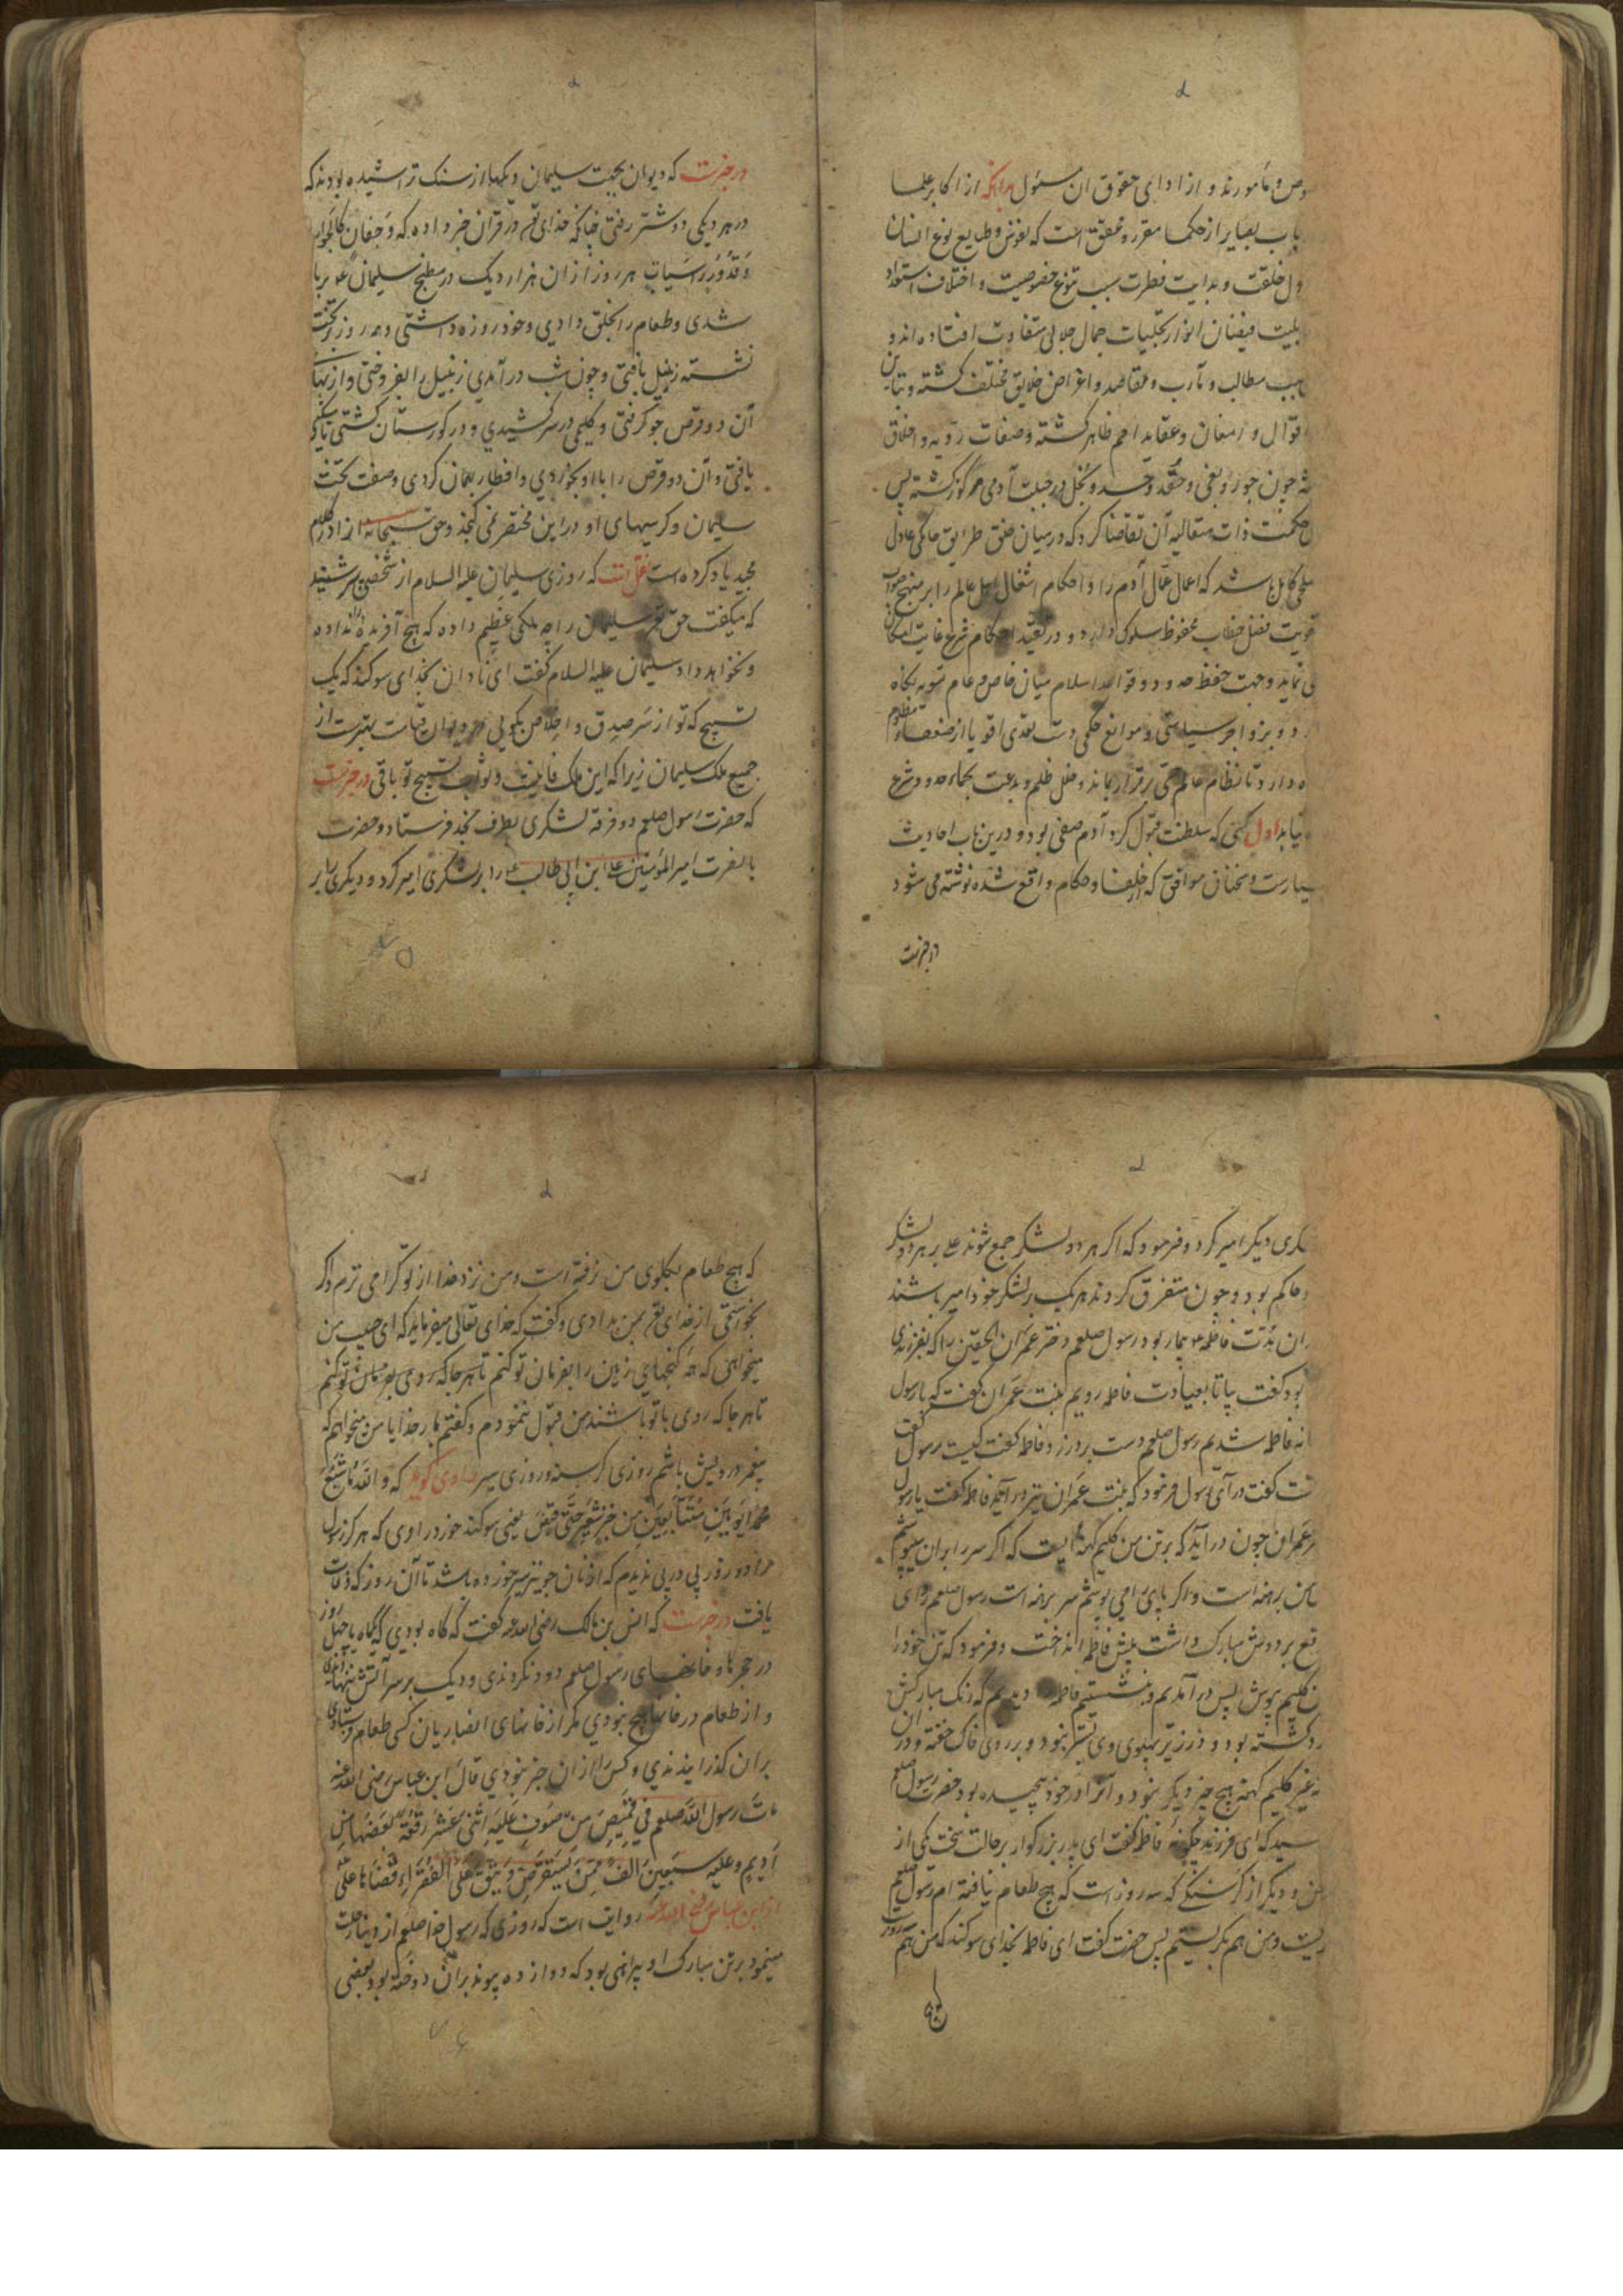 وص و مأمورند و از ادای حقوق ان مسئول بدانکه از اکابر علما
باب بصایر از حکما مقرر و محقق است که نفوس و طبایع نوع انسان
ول خلقت و بدایت فطرت سبب تنوع خصوصیت و اختلاف استعداد
بلیت فیضان انوار تجلیات جمال جلالی متفاوت افتاده اند و
سبب مطالب و مآرب و مقاصد و اغراض خلایق مختلف کشته و تباین
اقوال و افعال و عقاید امم ظاهر کشته و صفات ردیه و اخلاق
مه چون جور و بغی و حقد و حسد و بخل در جبلت آدمی مرکوز کشته پس
حکمت ذات متعالیه آن تقاضا کرد که در میان خلق طرایق حاکمی عادل
ملکی کامل باشد که اعمال عمال آدم را و احکام اشغال اهل عالم را بر منهج صواب
تقویت فضل خطاب محفوظ سلوک دارد و در تنفیذ احکام شرع غایت امکان
ی نماید و جهت حفظ حدود و قواعد اسلام میان خاص و عام تسویه نکاه
رد و بزواجر سیاستی و موانع حکمی دست تعدی اقویا از ضعفاء مظلوم
ه دارد تا نظام عالم برقرار بماند و خلل ظلم و بدعت بحماء حدود شرع
ه نیابد اول کسی که سلطنت قبول کرد آدم صفی بود و درین باب احادیث
سیارست و سخنان موافق که از خلفا و حکام واقع شده نوشته می شود
در خبرست
در خبرست که دیوان بجهت سلیمان دیکها از سنک تراشیده بودند که
در هر دیکی دو شتر رفتی چنانکه خدای تع در قران خبر داده که و جفان کالجواب
و قدور راسیات هر روز ازان هزار دیک در مطبخ سلیمان ع بربا
شدی و طعام را بخلق دادی و خود روزه داشتی و همه روز بر تخت
نشسته زنبیل بافتی و چون شب در آمدی زنبیل را بفروختی و از بهای
آن دو قرص جو کرفتی و کلیمی در سر کشیدی و در کورستان کشتی تا مسکینی
یافتی و آن دو قرص را با او بخوردی و افطار بهمان کردی و صفت تخت
سلیمان و کرسیهای او در این مختصر نمی کنجد و حق سبحانه از او در کلام
مجید یاد کرده است نقل است که روزی سلیمان علیه السلام از شخصی بشنید
که میکفت حق تع سلیمان را چه ملکی عظیم داده که هیچ آفریده را نداده
و نخواهد داد سلیمان علیه السلام کفت ای نادان بخدای سوکند که یک
تسبیح که تو از سر صدق و اخلاص بکویی در دیوان قیامت بهترست از
جمیع ملک سلیمان زیرا که این ملک فانیست و ثواب تسبیح تو باقی در خبرست
که حضرت رسول صلعم دو فرقه لشکری بطرف نجد فرستاد و حضرت
با نصرت امیر المؤمنین علی ابن ابی طالب ع را بر لشکری امیر کرد و دیکری را بر
لشکری دیکر امیر کرد و فرمود که اکر هر دو لشکر جمع شوند علی بر هر دو لشکر
حاکم بود و چون متفرق کردند هر یک بر لشکر خود امیر باشند
ران مدت فاطمه ع بیمار بود رسول صلعم دختر عمران الحصین را که بفرزندی
بود کفت بیا تا بعیادت فاطمه رویم بنت عمران کفت که با رسول
انه فاطمه شدیم رسول صلعم دست بر در زد فاطمه کفت کیست رسول کفت
ت کفت در آی رسول فرمود که بنت عمران نیز در آید فاطمه کفت یا رسول
عمران چون در آید که بر تن من کلیم کهنه ایست که اکر سر را بران میپوشم
من برهنه است و اکر پای را می پوشم سر برهنه است رسول صلعم ردای
قع بر دوش مبارک داشت پیش فاطمه انداخت و فرمود که تن خود را
ن کلیم بپوش پس در آمدیم و بنشستیم فاطمه را دیدیم که رنک مبارکش
زرد کشته بود و در زیر پهلوی وی بستر نبود و بر روی خاک خفته و در ان
ه غیر کلیم کهنه هیچ چیز دیکر نبود و آنرا در خود پیچیده بود حضرت رسول صلعم
سید که ای فرزند چکونه فاطمه کفت ای پدر بزرکوار بر حالت سخت یکی از
من و دیکر از کرسنکی که سه روز است که هیچ طعام نیافته ام رسول صلعم
ریست و من هم بکریستیم پس حضرت کفت ای فاطمه بخدای سوکند که من هم سه روزست
که هیچ
که هیچ طعام بکلوی من نرفته است و من نزد خدا از تو کرامی ترم و اکر
بخواستمی از خدای تع بمن بدادی و کفت که خدای تعالی میفرماید که ای حبیب من
میخواهی که همه کنجهای زمین را بفرمان تو کنم تا هر جا که روی بفرمان تو کنم
تا هر جا که روی با تو باشند من قبول ننمودم و کفتم بار خدایا من میخواهم که
پیغمبر درویش باشم روزی کرسنه و روزی سیر راوی کوید که و الله ما شبع
محمد یومین متتابعین من خبز شعیر حتی قبض یعنی سوکند خورد راوی که هرکز رسول
خدا دو روز پی در پی ندیدم که از نان جو نیز سیر خورده باشد تا آن روز که وفات
یافت در خبرست که انس بن مالک رضی الله عنه کفت که کاه بودی که یکماه یا چهل روز
در حجره ها و خانهای رسول صلعم دود نکردندی و دیک بر سر آتش ننهادندی
و از طعام در خانها هیچ نبودی مکر از خانهای انصاریان کسی طعام فرستادی
بران کذرانیدندی و کس را ازان خبر نبودی قال ابن عباس رضی الله عنه
مات رسول الله صلعم فی قمیص من صوف علیه اثنی عشر رقعة بعضها من
أدیم و علیه سبعین الف من یستقرض و ینفق علی الفقراء فقضاها علی
از ابن عباس رضی الله عنه روایت است که روزی که رسول خدا صلعم از دنیا رحلت
مینمود بر تن مبارک او پیراهنی بود که دوازده پیوند بران دوخته بود بعضی